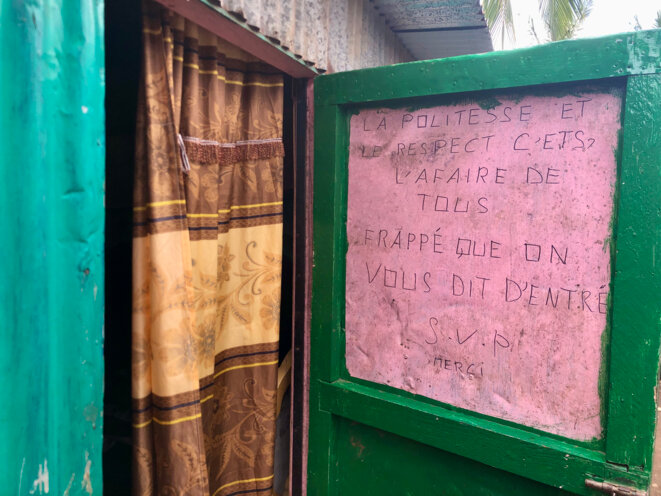 LA POLITESSE ET
LE RESPECT C'ETS?
L'AFAIRE DE
TOUS
FRAPPÉ QUE ON
VOUS DIT D'ENTRÉ
S.V.P
MERCI